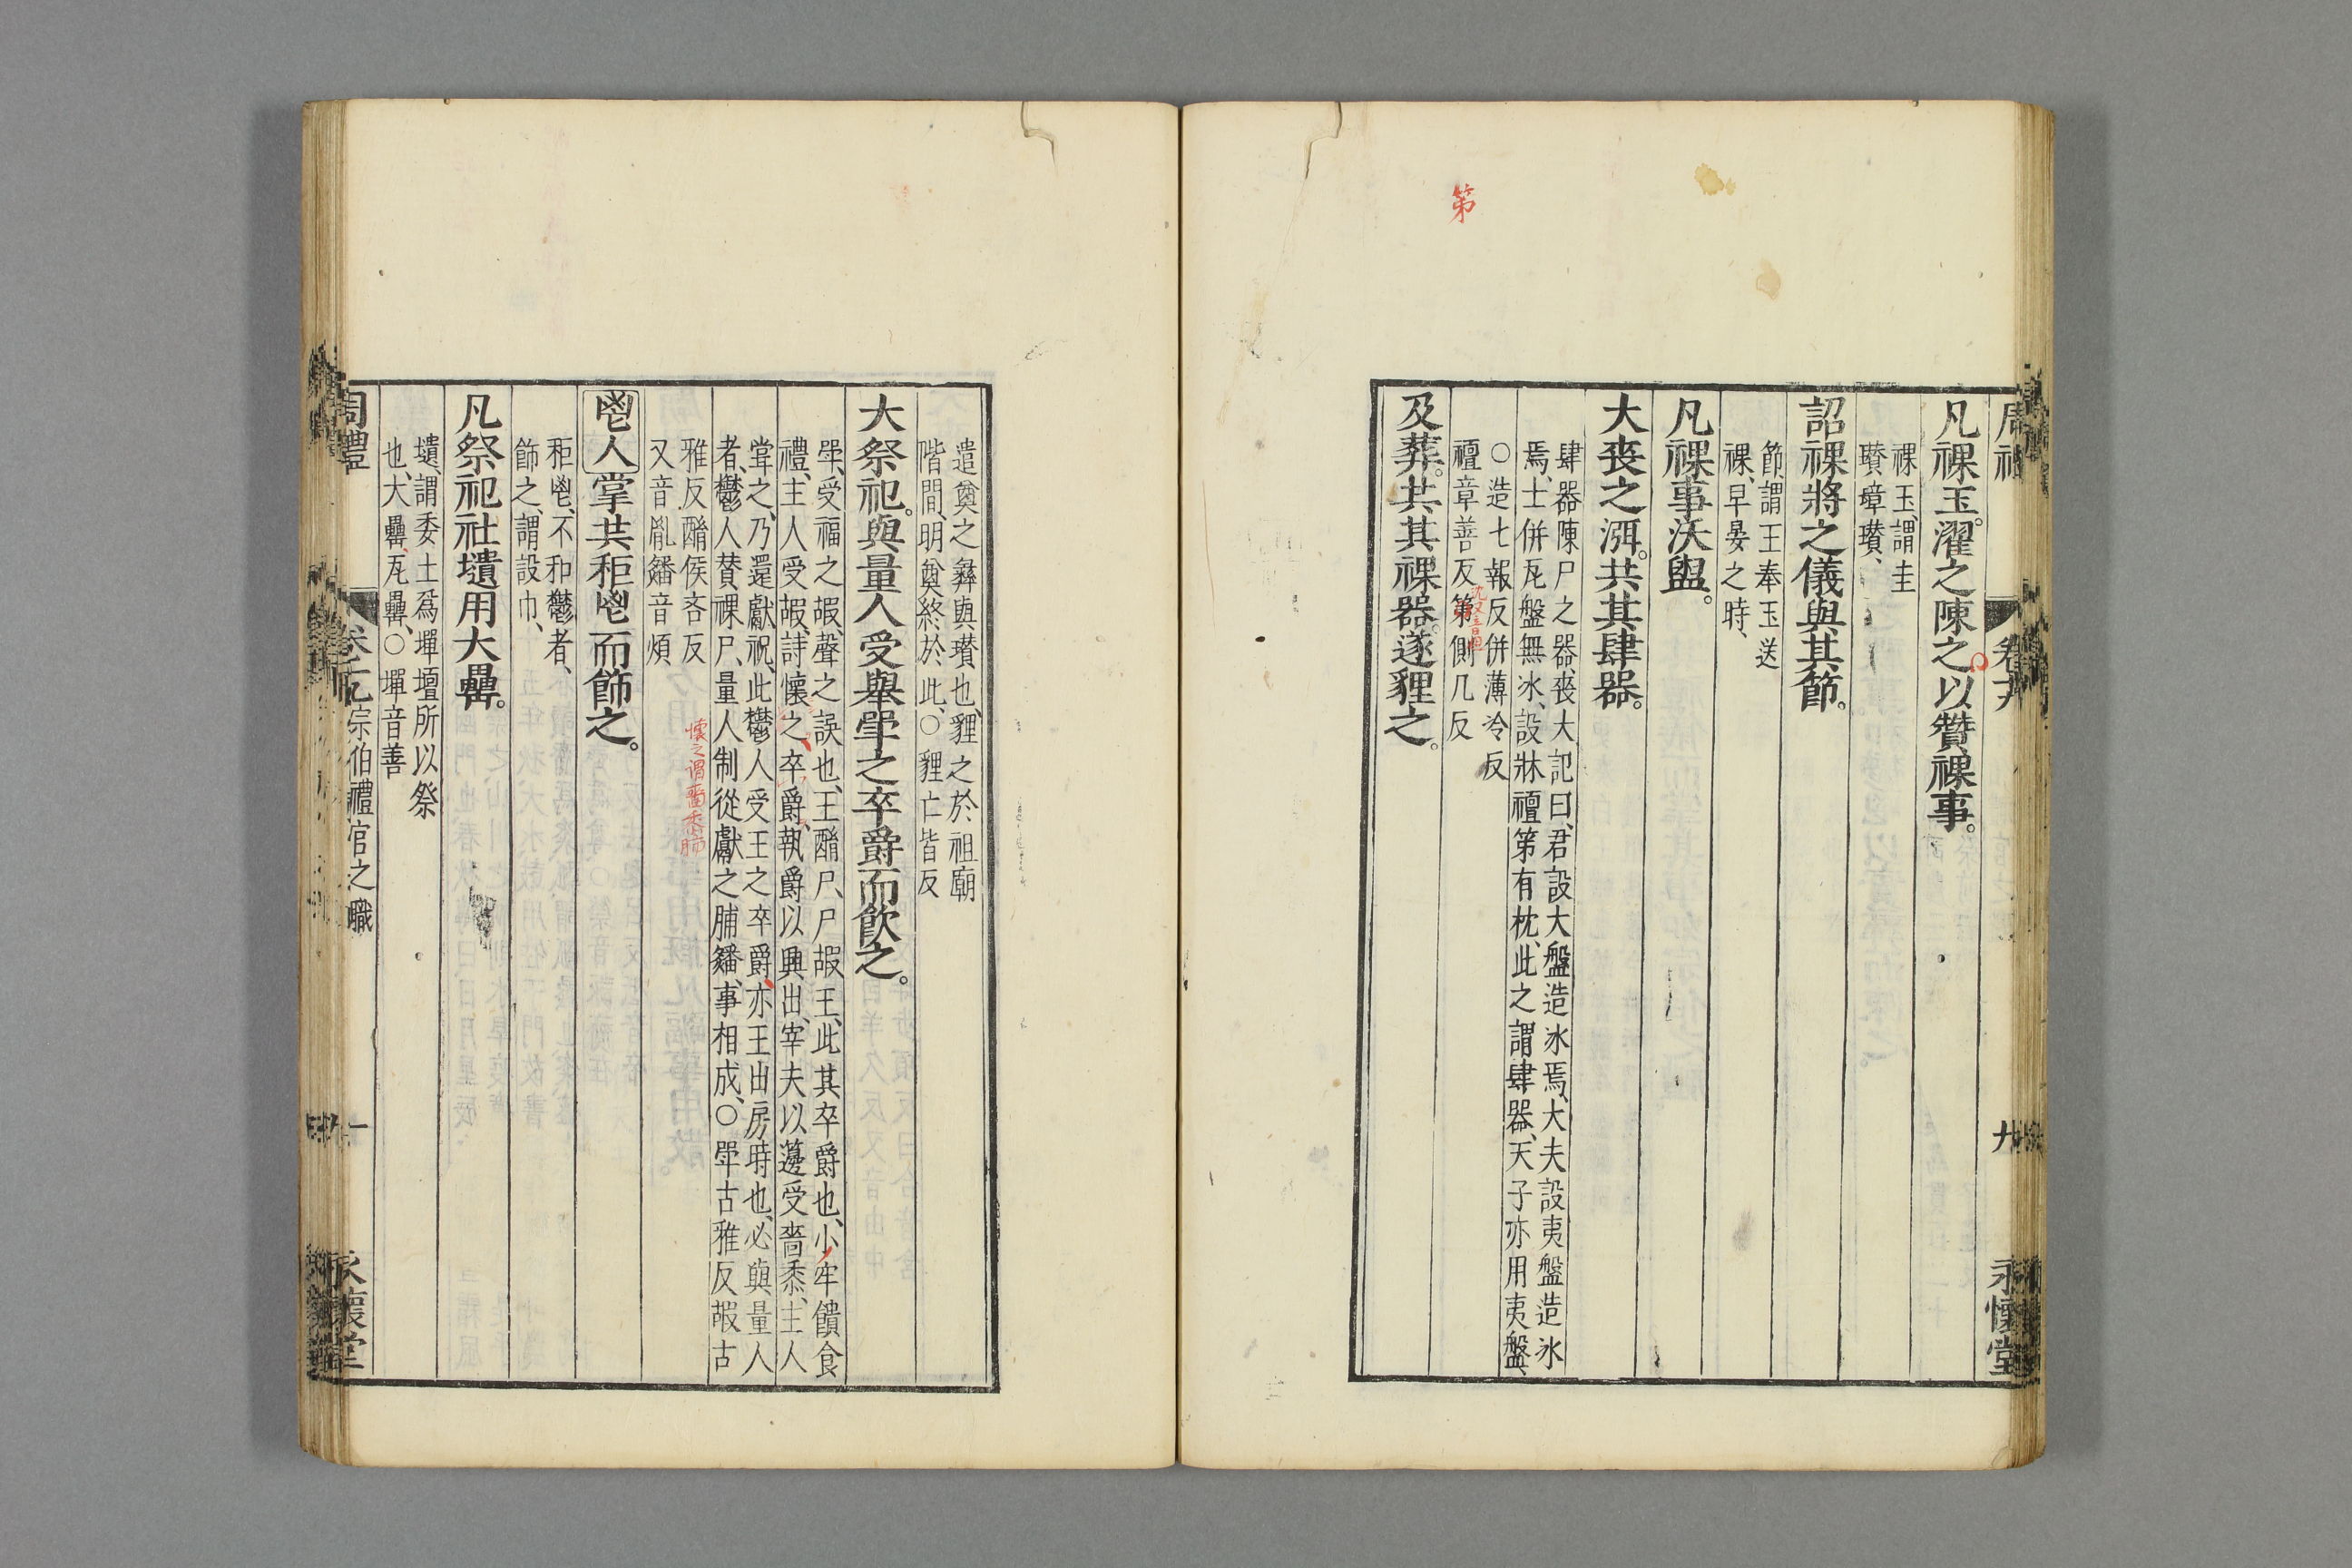 第
凡祼玉。濯之陳之。以贊祼事。
祼玉、謂圭
瓚、璋瓚、
詔祼將之儀與其節。
節、謂王奉玉送
祼、早晏之時、
凡祼事沃盥。
大喪之渳。共其肆器。
肆器、陳尸之器、喪大記曰、君設大盤造冰焉、大夫設夷盤造冰
焉、士併瓦盤無冰、設牀襢第有枕、此之謂肆器、天子亦用夷盤、
〇造七報反併薄冷反
襢章善反第側几反
及葬。共其祼器。遂貍之。
永懷堂
遣奠之彝與瓚也、貍之於祖廟
階間、明奠終於此、〇貍亡皆反
大祭祀。與量人受舉斝之卒爵而飲之。
斝、受福之嘏、聲之誤也、王酳尸、尸嘏王、此其卒爵也、少牢饋食
禮、主人受嘏、詩懷之、卒爵、執爵以興出、宰夫以籩受嗇黍、主人
嘗之、乃還獻祝、此鬱人受王之卒爵、亦王出房時也、必與量人
者、鬱人贊祼尸、量人制從獻之脯燔、事相成、〇斝古雅反嘏古
雅反酳侯吝反
又音胤燔音煩
懷之謂嗇黍
鬯人掌共秬鬯而飾之。
秬鬯、不和鬱者、
飾之、謂設巾、
凡祭祀社壝用大罍。
壝、謂委土爲墠壇所以祭
也、大罍、瓦罍、〇墠音善
周禮
宗伯禮官之職
永懷堂